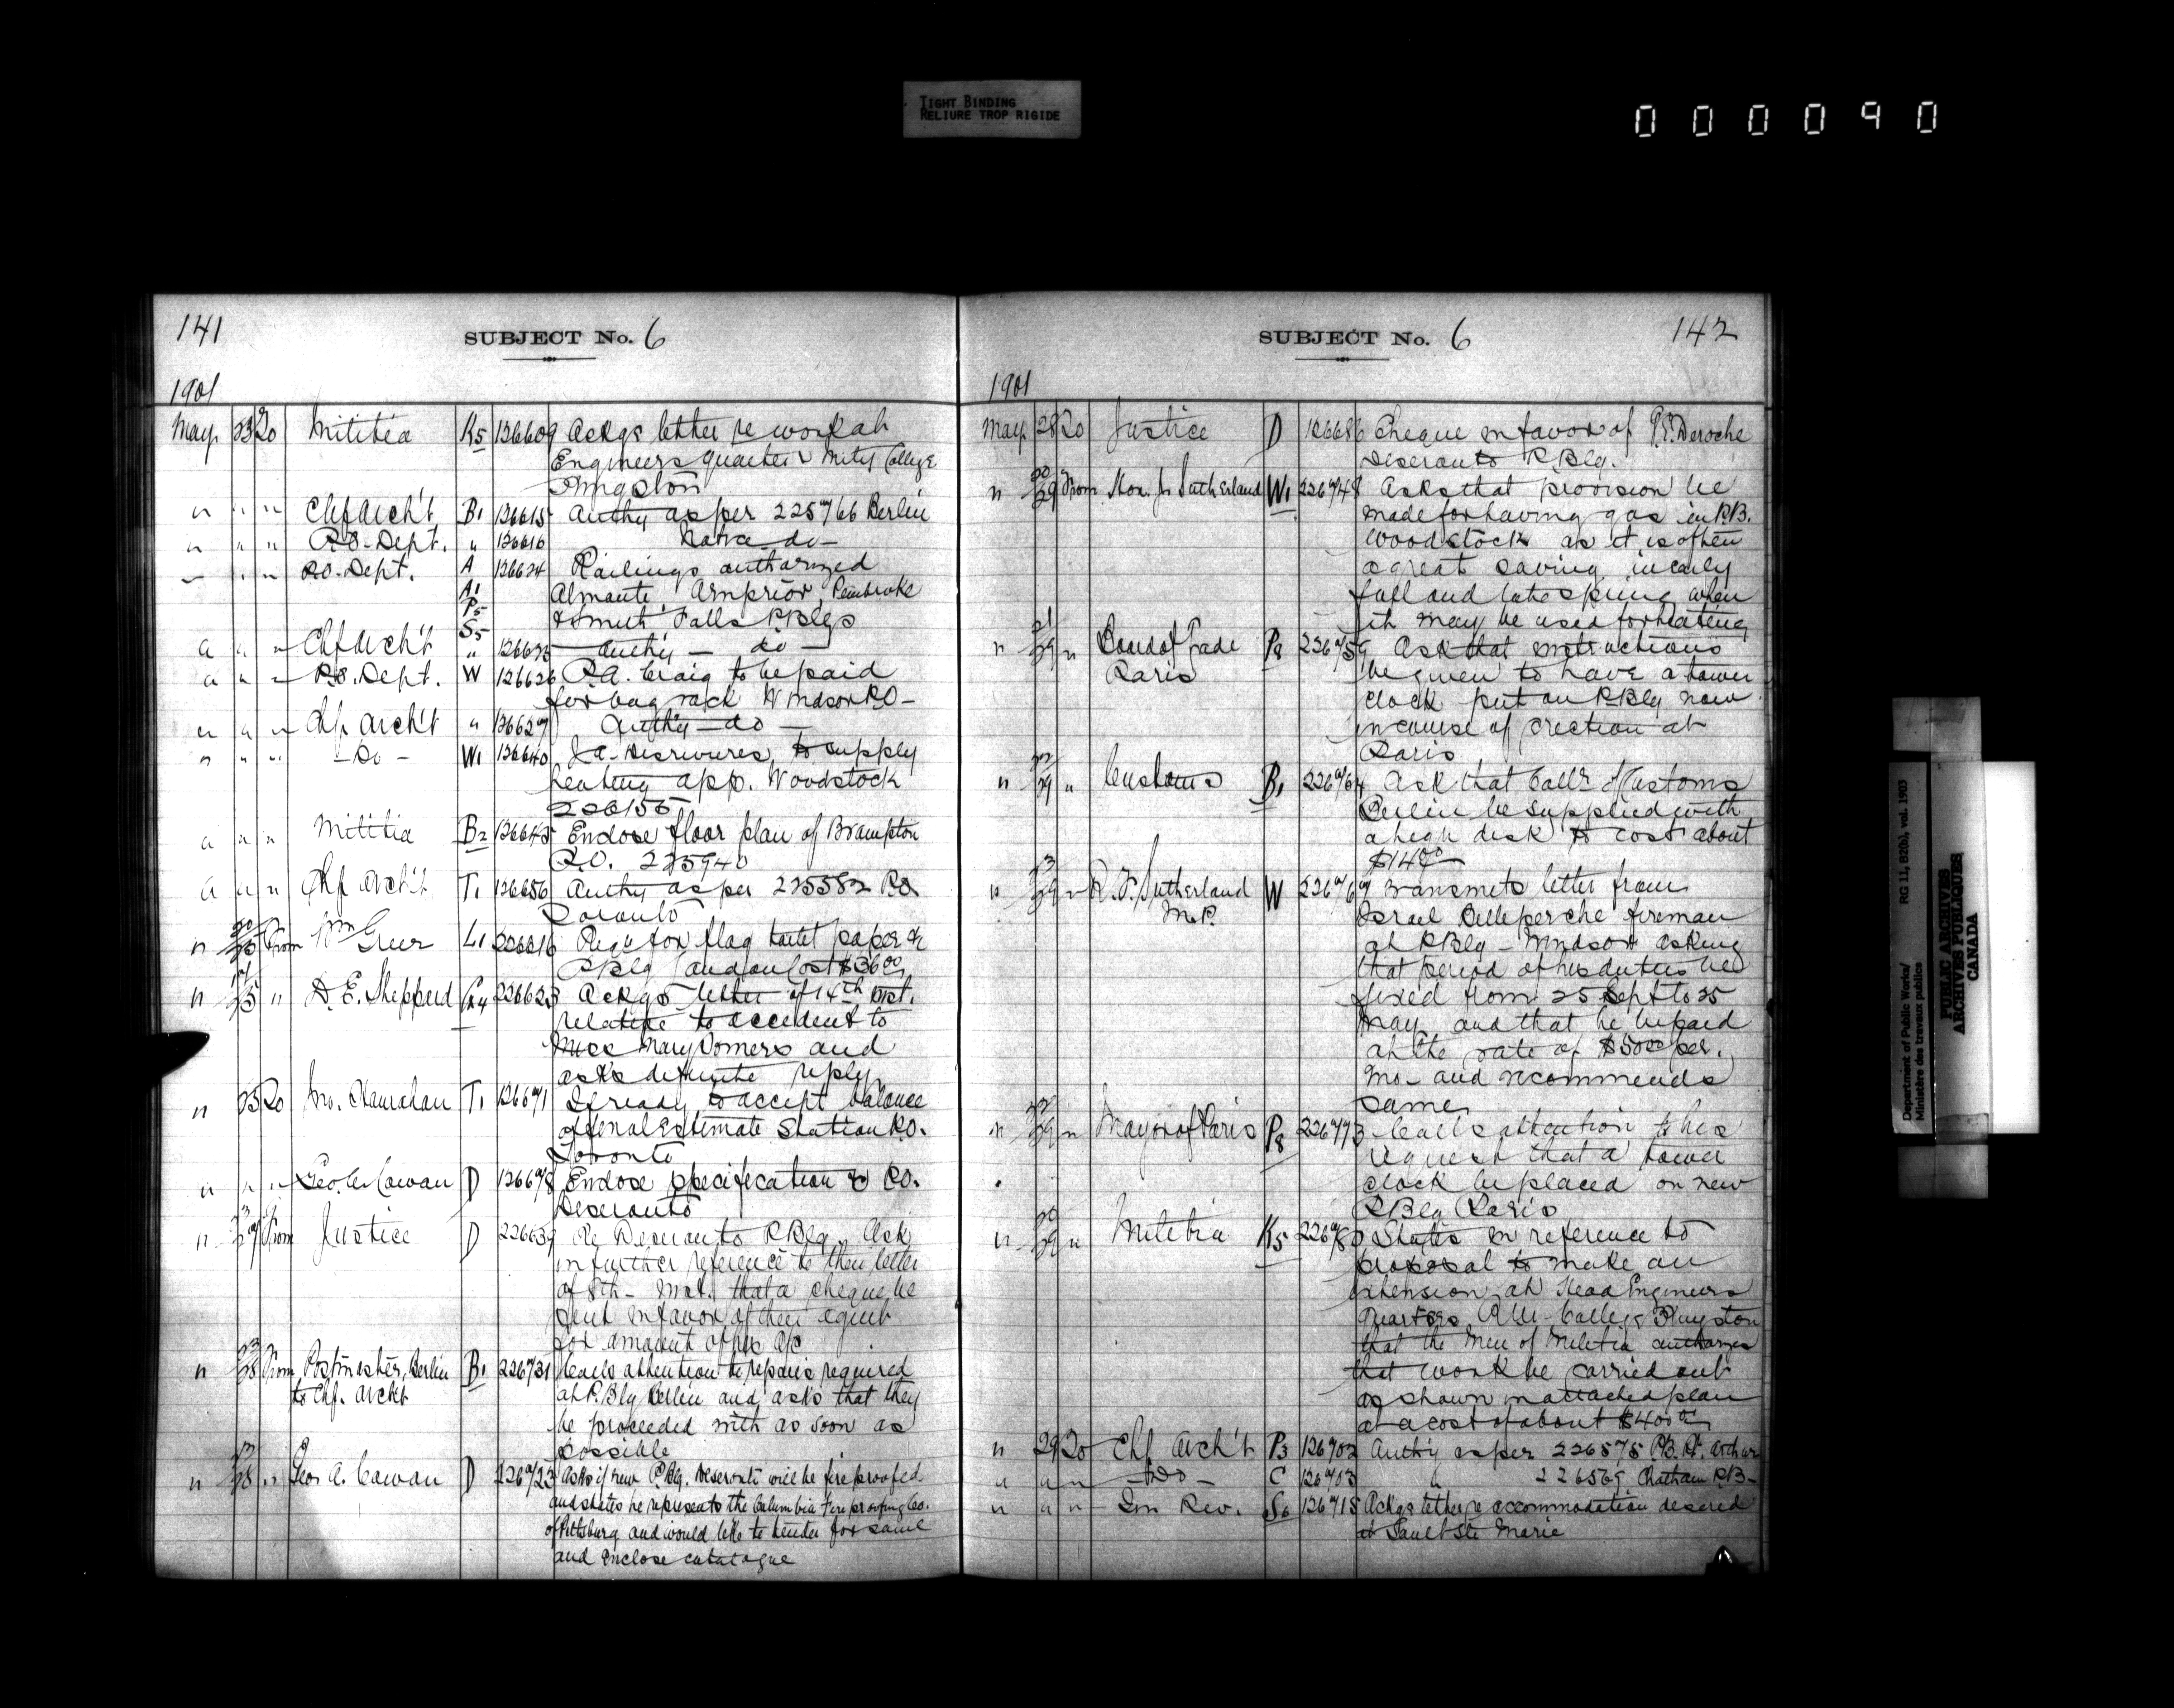 TIGHT BINDING
RELIURE TROP RIGIDE
000090
141
SUBJECT No. 6
1901
May 23 To Militia K5 126609 Ackgs letter re work at
Engineers quarters Mily College
Kingston
" " " Chf Arch't B1 126615 Authy as per 225766 Berlin
" " " P.O. Dept. " 126616 do
" " " P.O. Dept. A 126624 Railings authorized
A1 Almonte Arnprior Pembroke
P5 & Smith Falls P.Blgs
S5
" " " Chf Arch't " 126625 Authy do
" " " P.O. Dept. W 126626 P.A. Craig to be paid
for bag rack Windsor P.O.
" " " Chf Arch't " 126627 Authy do
" " " Do W1 126640 J.A. to supply
heating app. Woodstock
226155
" " " Militia B2 126645 Enclose floor plan of Brampton
P.O. 225940
" " " Chf Arch't T1 126656 Authy as per 225582 P.O.
Toronto
" 20/25 From Wm Greer L1 226616 Requ for flag toilet paper &c
P.Blg Cost $36.00
" 25 " D. E. Shepperd 226623 Ackgs letter of 14th inst.
relative to accident to
Miss Mary and
asks definite reply
" 25 To Jno. Hanrahan T1 126671 Is ready to accept balance
of final estimate Station P.O.
Toronto
" " " Geo. A. Cowan D 126678 Enclose specification P.O.
Deseronto
" 27 From Justice D 226639 Re Deseronto P.Blg. Ask
in further reference to their letter
of 8th inst. that a cheque be
sent in favor of their agent
for amount of his a/c
" 23/28 From Postmaster, Berlin B1 226731 Calls attention to repairs required
to Chf. Archt at P.Blg Berlin and asks that they
be proceeded with as soon as
possible
" 28 " Geo. A. Cowan D 226723 Asks if new P.Blg. Deseronto will be fire proofed
and states he represents the Columbia Fire proofing Co.
of Pittsburg and would like to tender for same
and enclose catalogue
SUBJECT No. 6
142
1901
May 28 To Justice D 126686 Cheque in favor of Deroche
Deseronto P.Blg.
" 20/29 From Hon. Js Sutherland W1 226748 Asks that provision be
made for having gas in P.B.
Woodstock as it is often
a great saving in early
fall and late spring when
it may be used for heating
" 21/29 " Board of Trade P8 226759 Ask that instructions
Paris be given to have a tower
clock put on P.Blg now
in course of erection at
Paris
" 29 " Customs B1 226764 Ask that Collr of Customs
Berlin be supplied with
a high desk to cost about
$14.00
" 29 " R. F. Sutherland W 226767 Transmits letter from
M.P. Israel Belleperche fireman
at P.Blg - Windsor asking
that period of his duties be
fixed from 25 Sept to 25
May and that he be paid
at the rate of $50.00 per.
mo - and recommends
same
" 22/29 " Mayor of Paris P8 226773 Calls attention to his
request that a tower
clock be placed on new
P.Blg Paris
" 29 " Militia K5 226780 States in reference to
proposal to make an
extension at Head Engineers
Quarters R.M. College Kingston
that the Min of Militia authorizes
that work be carried out
as shown in attached plan
at a cost of about $400.00
" 29 To Chf Arch't P3 126702 Authy as per 226575 P.B. Pt. Arthur
" " " Do C 126703 " 226569 Chatham P.B.
" " " Inn Rev. S6 126715 Ackgs letter re accommodation desired
at Sault Ste Marie
Department of Public Works/ RG 11, B2(b), vol. 1903
Ministère des travaux publics
PUBLIC ARCHIVES
ARCHIVES PUBLIQUES
CANADA